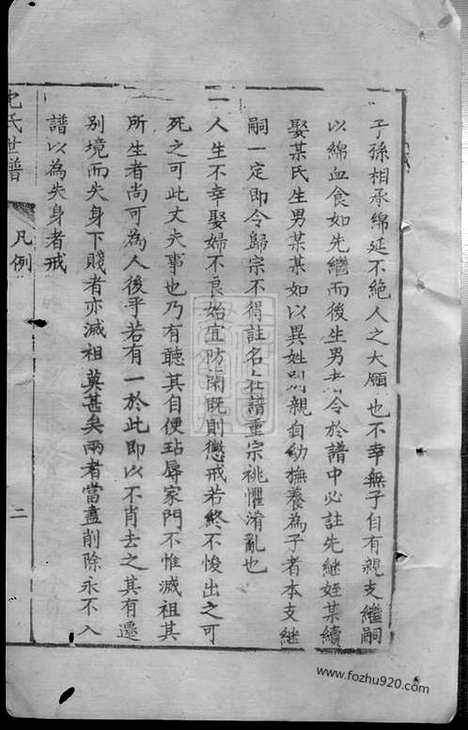 子孫相承綿延不絕人之大願也不幸無子自有親支繼嗣
以綿血食如先繼而後生男者令於譜中必註先繼姪某續
娶某氏生男某某如以異姓別親自幼撫養為子者本支繼
嗣一定即令歸宗不得註名在譜重宗祧懼淆亂也
一人生不幸娶婦不良始宜防閑既則懲戒若終不悛出之可
死之可此丈夫事也乃有聽其自便玷辱家門不惟滅祖其
所生者尚可為人後乎若有一於此即以不肖去之其有遷
別境而失身下賤者亦滅祖莫甚矣兩者當盡削除永不入
譜以為失身者戒
氏世譜
凡例
二
www.fozhu920.com